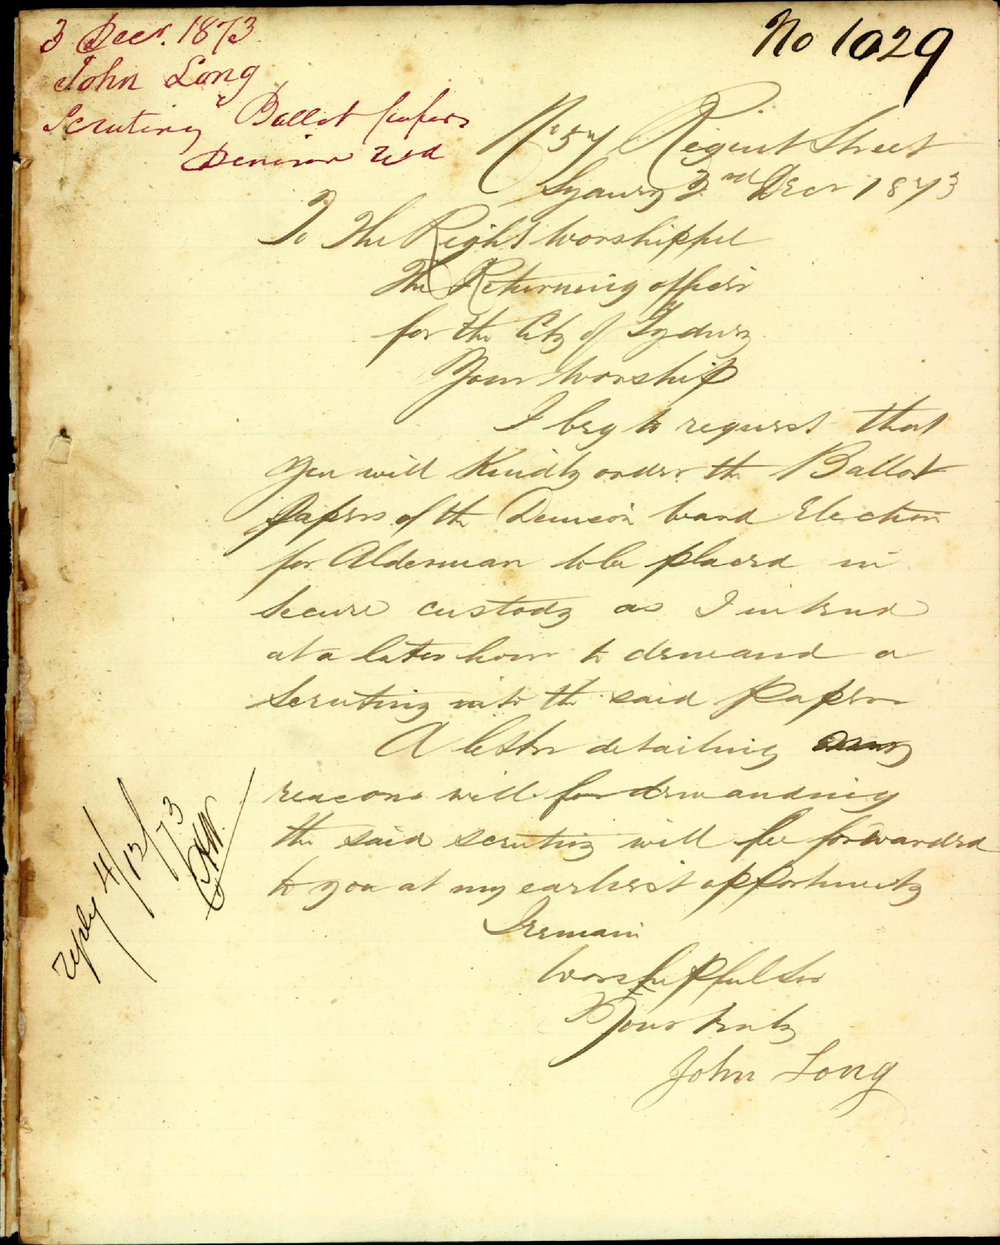 3 Decr. 1873
John Long
Scrutiny Ballot papers
Denison Wd
No 1029
No 57 Regent Street
Sydney 2nd Decr 1873
To The Right Worshipful
The Returning officer
for the City of Sydney
Your Worship
I beg to request that
you will Kindly order the Ballot
papers of the Denison ward Election
for Alderman to be placed in
secure custody as I intend
at a later hour to demand a
scrutiny into the said papers
A letter detailing my
reasons will for demanding
the said scrutiny will be forwarded
to you at my earliest opportunity
I remain
Worshipful Sir
Yours truly
John Long
reply 4/12/73